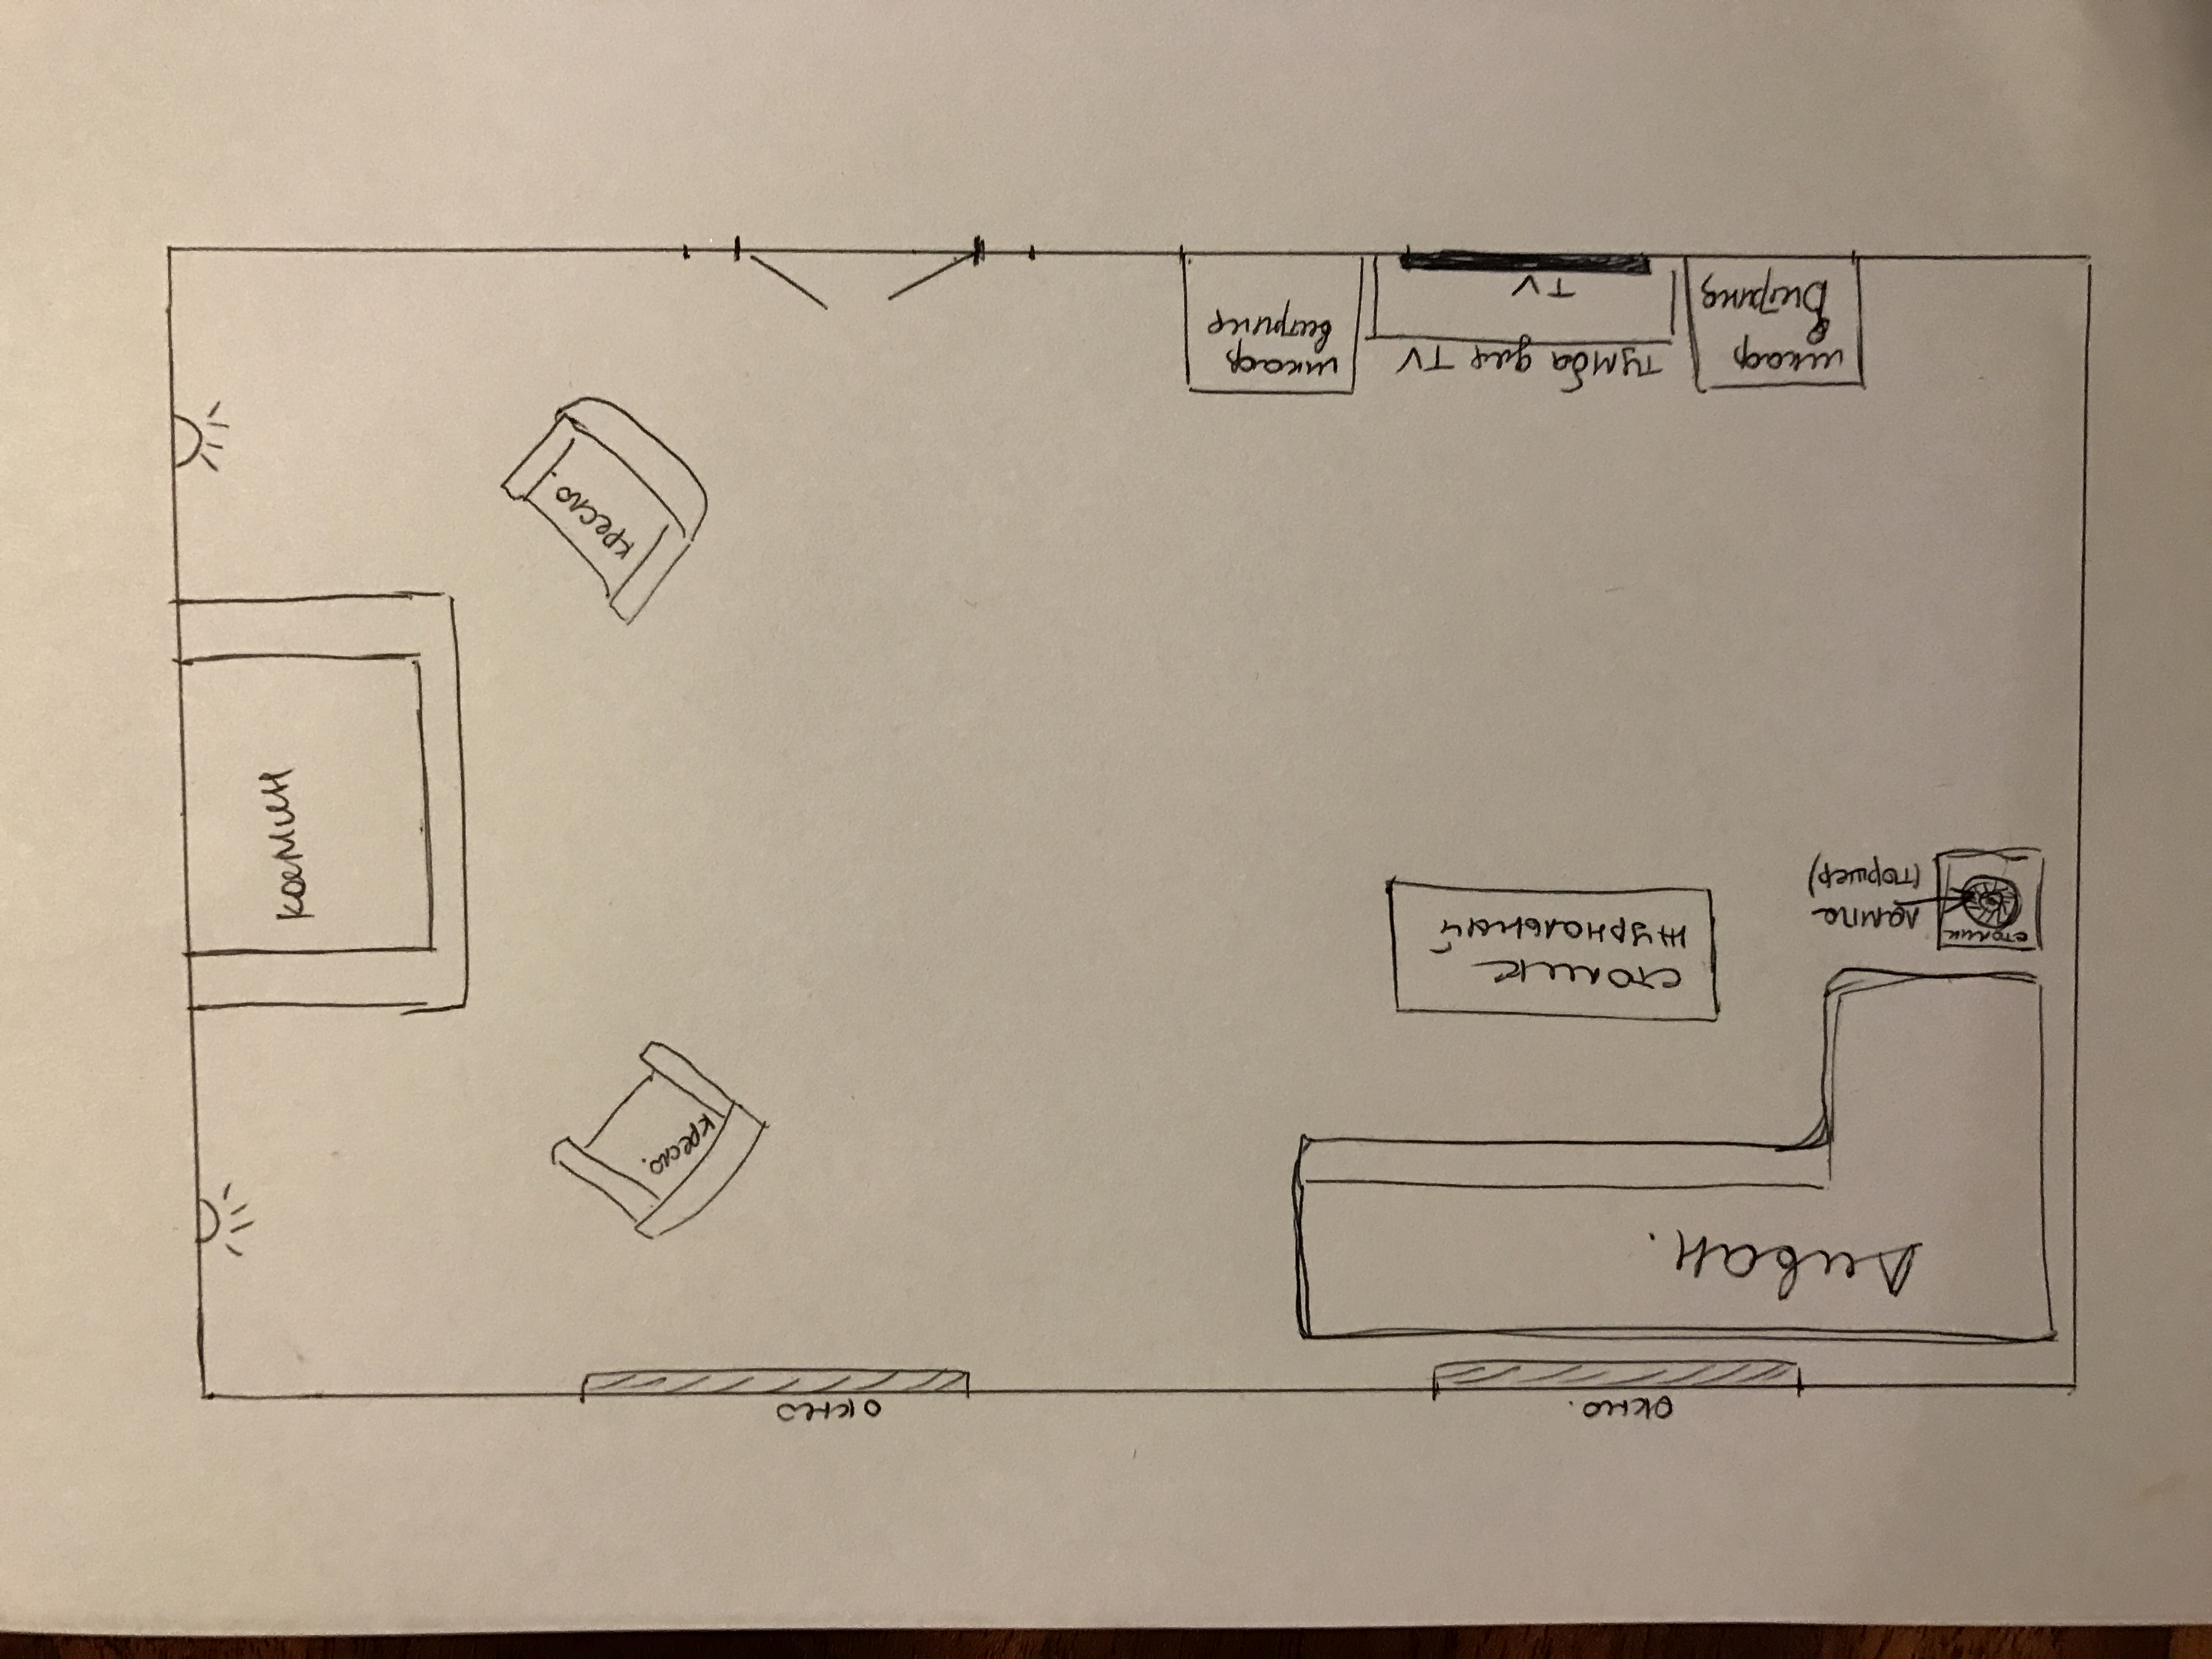 окно.
окно
Диван.
кресло.
столик
журнальный
столик
лампа
(торшер)
камин
кресло.
шкаф
витрина
тумба для TV
TV
шкаф
витрина